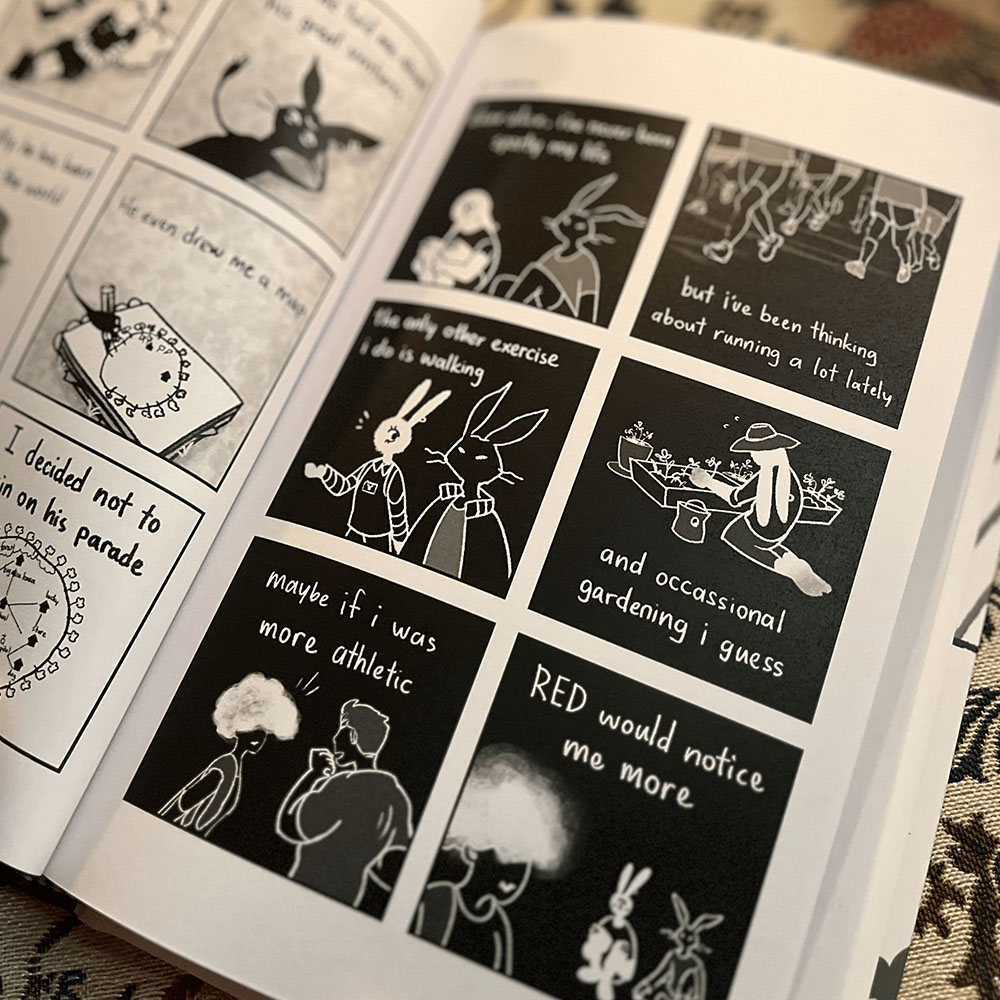 his good
he has been
the world
He even drew me a map
I decided not to
in on his parade
i've never been
sporty my life
but i've been thinking
about running a lot lately
the only other exercise
i do is walking
and occassional
gardening i guess
maybe if i was
more athletic
RED would notice
me more